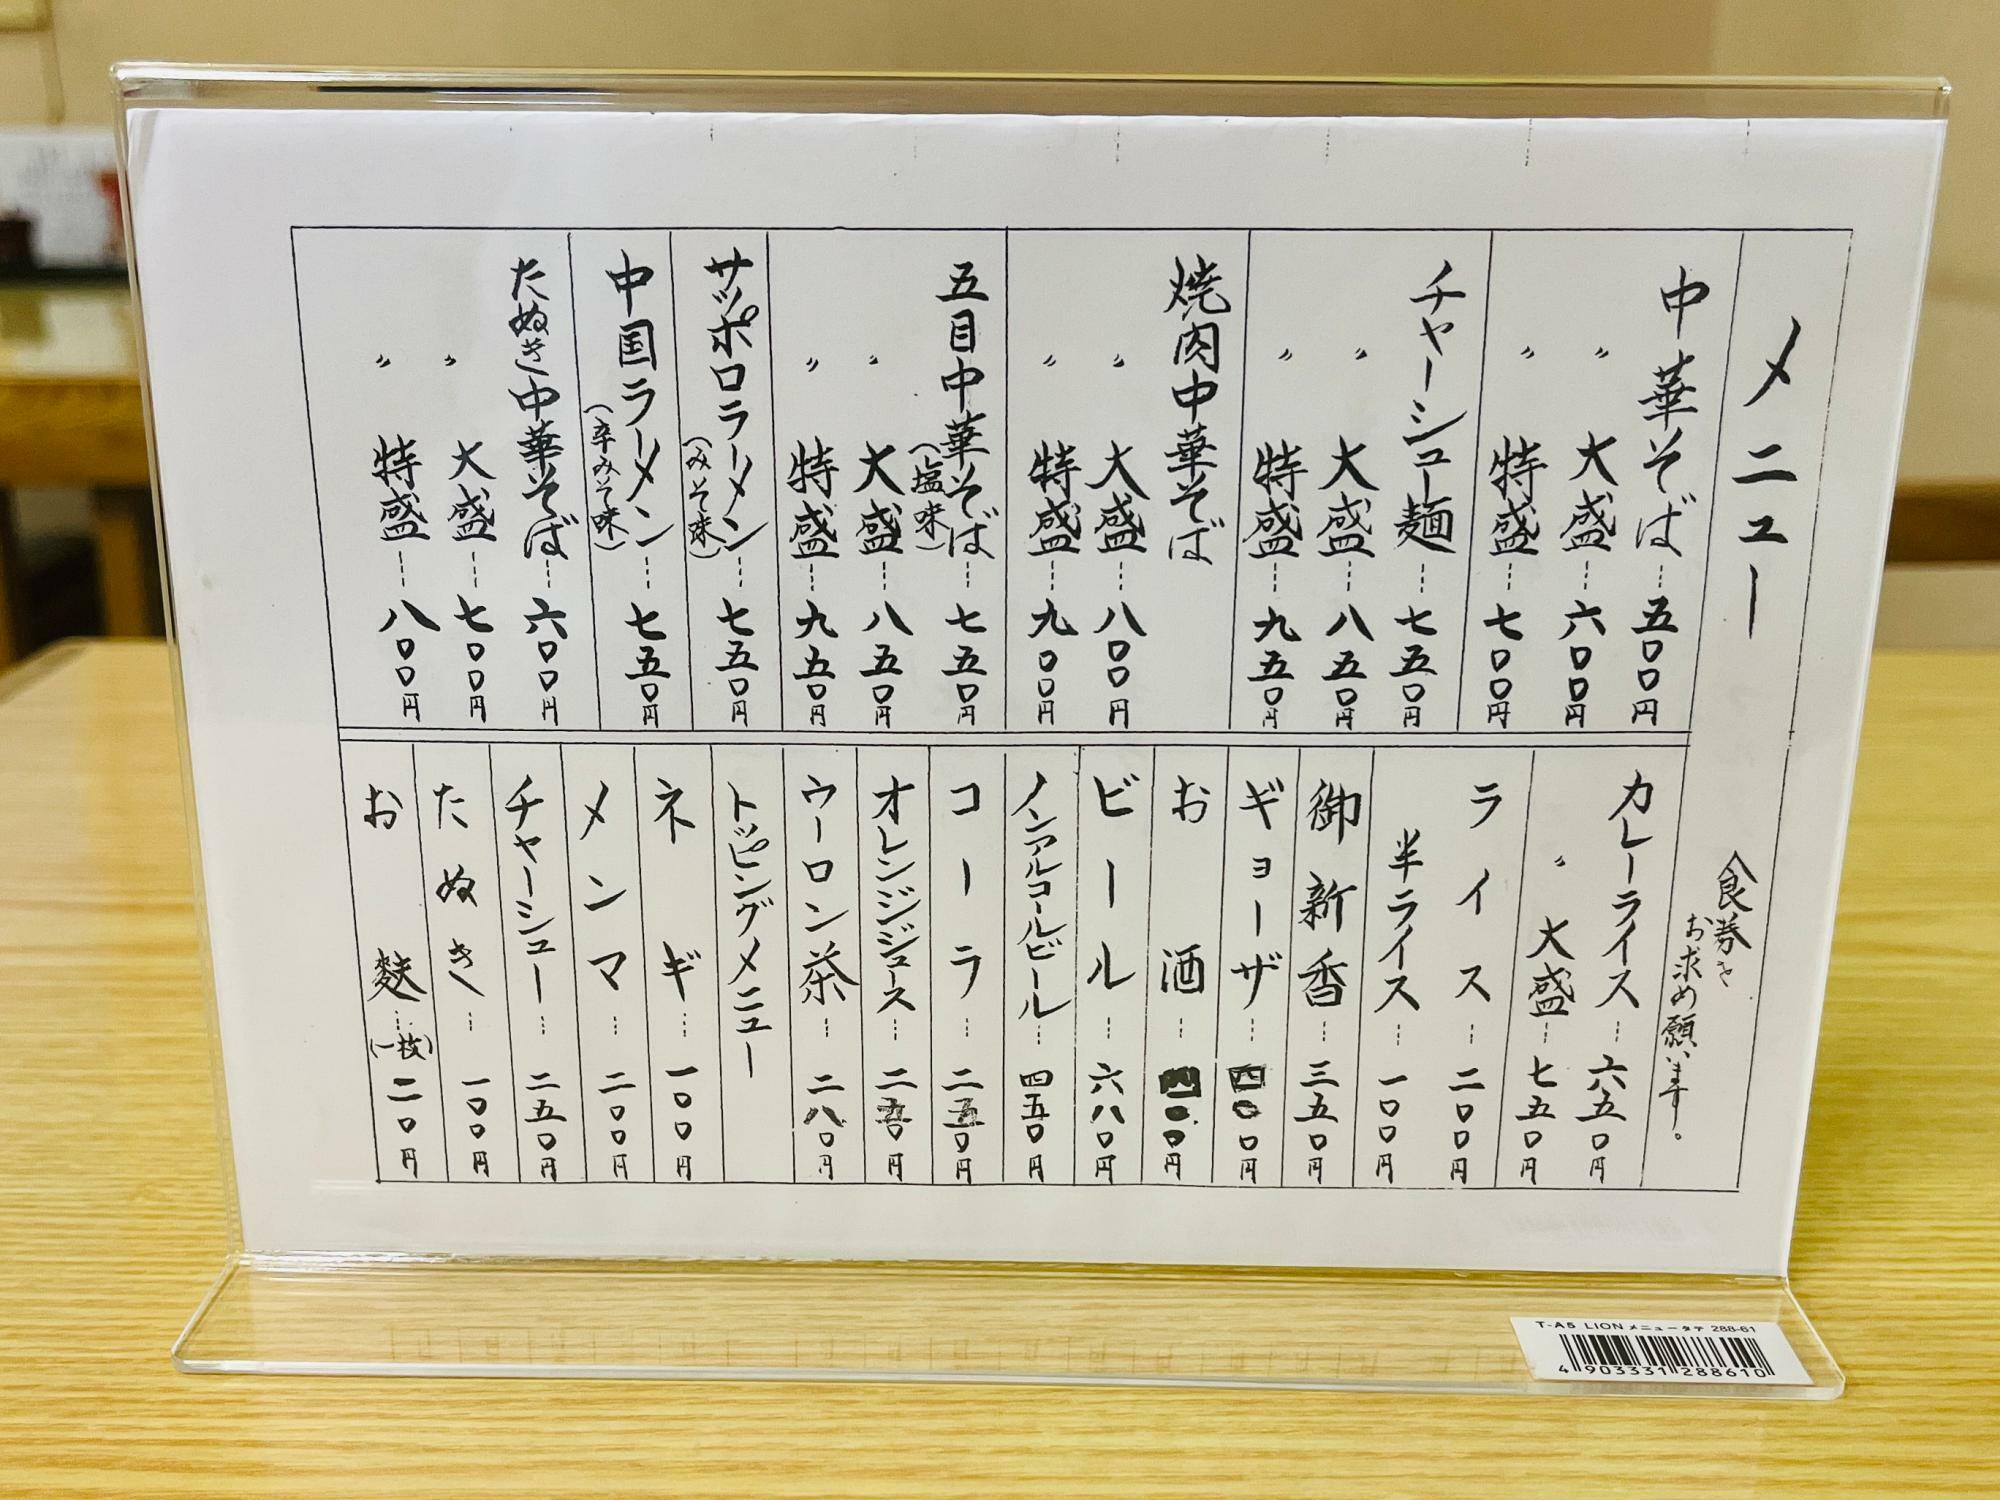 メニュー
食券を
お求め願います。
中華そば……五〇〇円
〃 大盛……六〇〇円
〃 特盛……七〇〇円
チャーシュー麺……七五〇円
〃 大盛……八五〇円
〃 特盛……九五〇円
焼肉中華そば
〃 大盛……八〇〇円
〃 特盛……九〇〇円
五目中華そば……七五〇円
(塩味)
〃 大盛……八五〇円
〃 特盛……九五〇円
サッポロラーメン……七五〇円
(みそ味)
中国ラーメン……七五〇円
(辛みそ味)
たぬき中華そば……六〇〇円
〃 大盛……七〇〇円
〃 特盛……八〇〇円
カレーライス……六五〇円
〃 大盛……七五〇円
ライス……二〇〇円
半ライス……一〇〇円
御新香……三五〇円
ギョーザ……四〇〇円
お酒……四〇〇円
ビール……六八〇円
ノンアルコールビール……四五〇円
コーラ……二五〇円
オレンジジュース……二五〇円
ウーロン茶……二八〇円
トッピングメニュー
ネギ……一〇〇円
メンマ……二〇〇円
チャーシュー……二五〇円
たぬき……一〇〇円
お麩……(一枚)二〇円
T-A5 LION メニュータテ 288-61
4 903331 288610